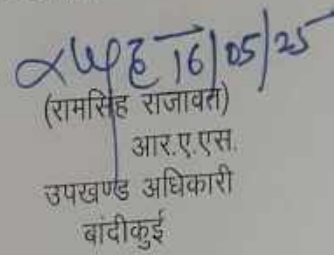 16/05/25
(रामसिंह राजावत)
आर.ए.एस.
उपखण्ड अधिकारी
बांदीकुई